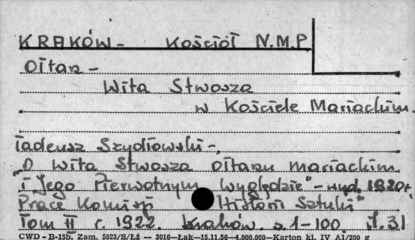 KRAKÓW - Kościół N.M.P.
Ołtarz -
Wita Stwosza
w Kościele Mariackim.
Tadeusz Szydłowski -
"O Wita Stwosza ołtarzu mariackim
i jego pierwotnym wyglądzie" - nud. 1920r.
Prace Komisji Historii Sztuki"
Tom II r. 1922. Kraków. s. 1-100, il. 31
CWD - B-15b. Zam. 5823/S/Łż - 3016 - Łąk - 15.11.56 - 4.000.000 - Karton kl. IV A1/200 g